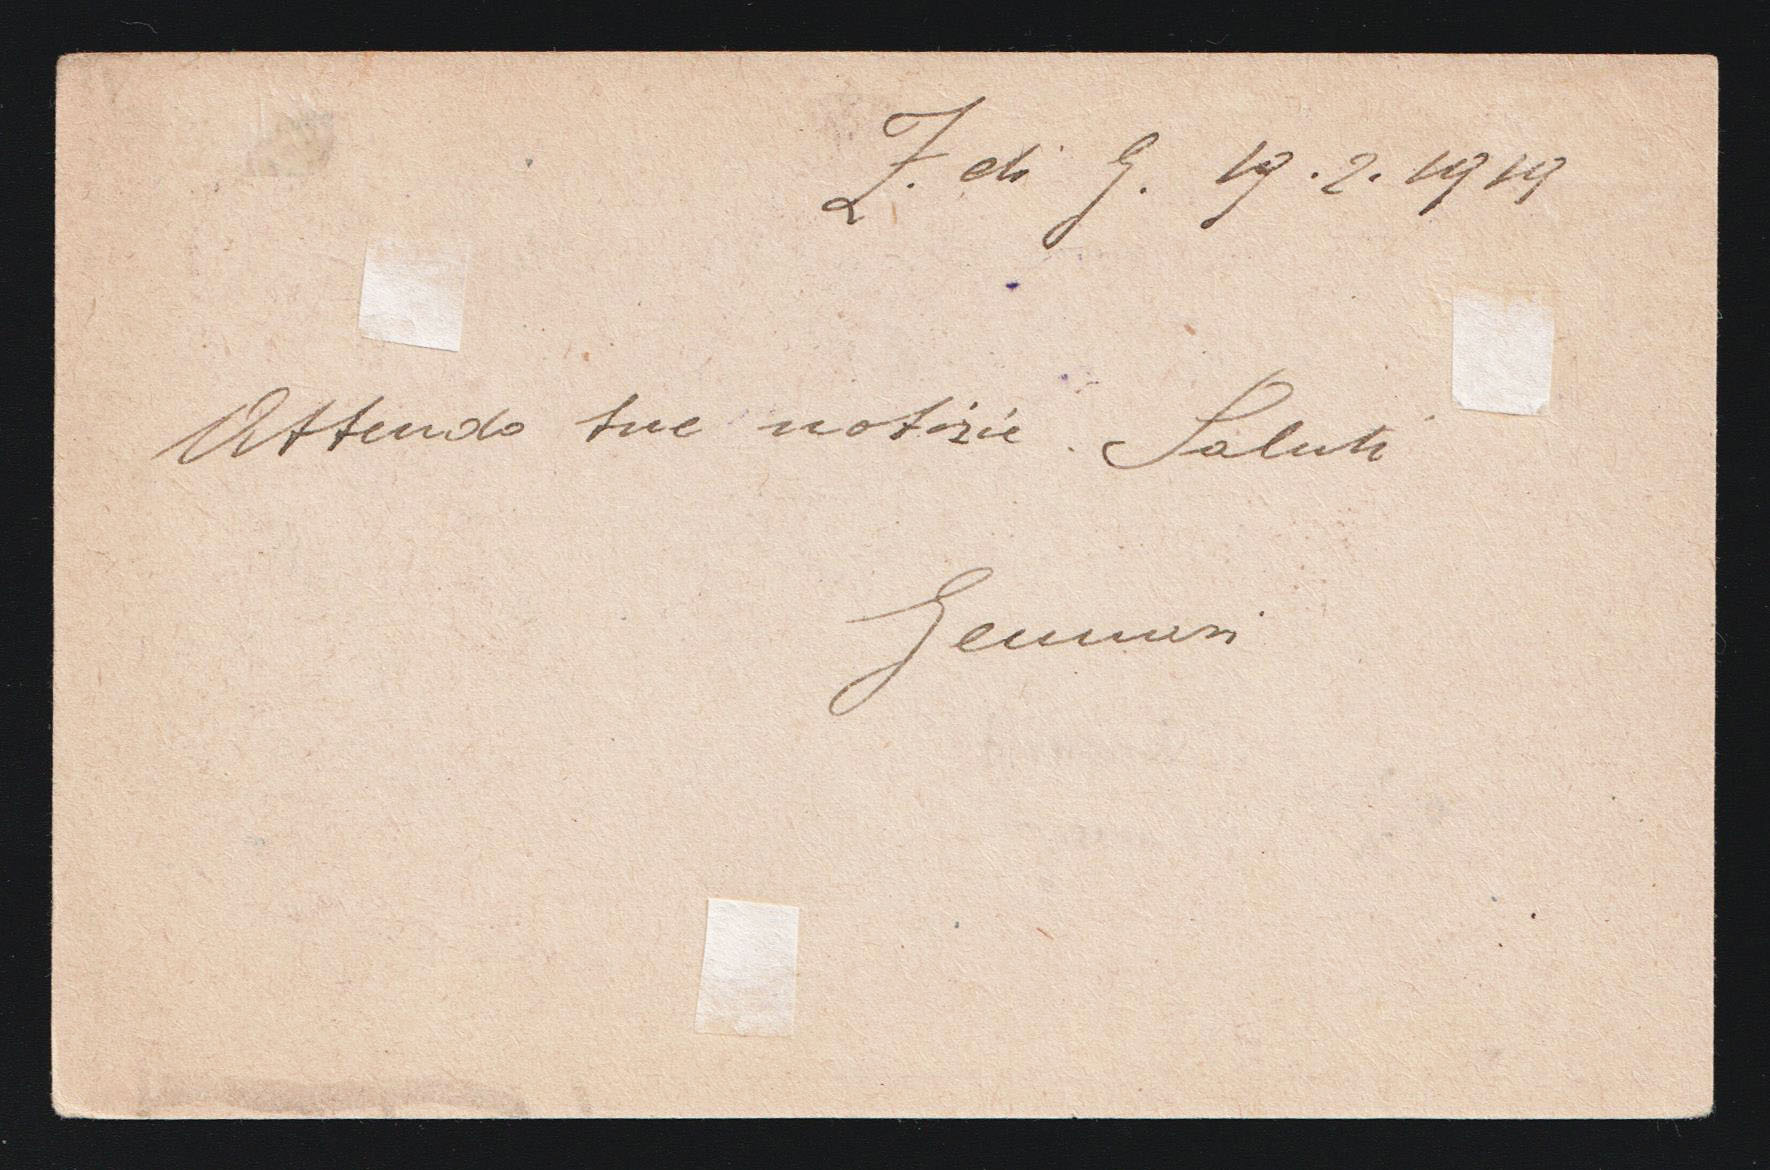 Z. di G. 19.2.1919
Attendo tue notizie. Saluti
Gennari